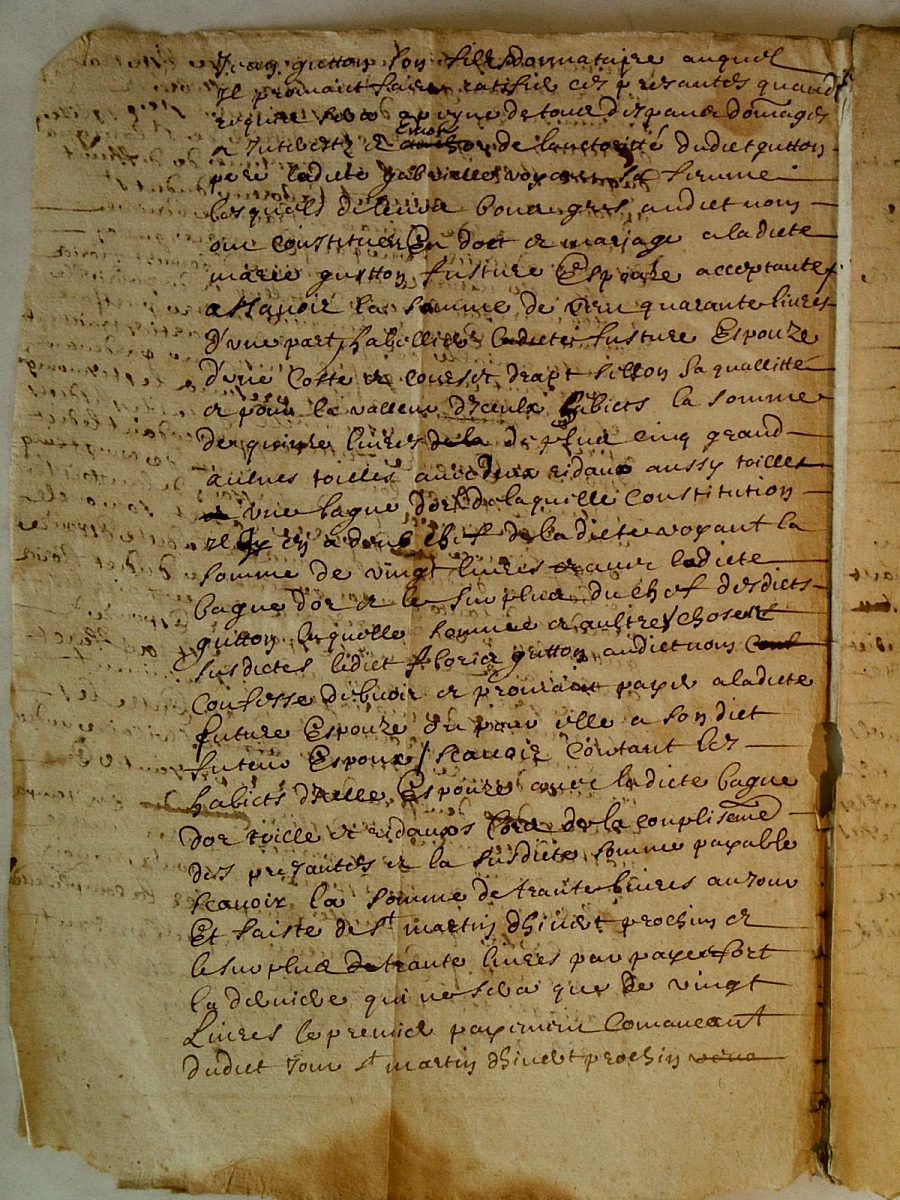 Jean guitton son filz donnataire auquel
Il promait faire ratifier ces presantes quand
requis sera a peyne de tous despans domages
a Interestz et de lauctorité dudict guitton
pere ladicte gabrielle voyant sa femme
lesquelz de leurs bons gres audict nom
ont constitué En doct et mariage a ladicte
marie guitton fusture Espouze acceptante
assavoir la somme de cent quarante livres
d'une part habilher ladicte fusture Espouze
d'une cotte et corset drapt sellon sa quallitté
et pour la valleur d'iceulx habicts la somme
de quinze livres de plus cinq grand
aulnes toilles avec deux ridaux aussy toilles
une bague d'or de laquelle constitution
Il y en a du chef de ladicte voyant la
somme de vingt livres avec ladicte
bague dor et le surplus du chef desdicts
guitton laquelle somme et aultres choses
susdictes ledict floris guitton audict nom
confesse debvoir et promait payer a ladicte
future Espouze ou pour elle a sondict
futeur Espoux / scavoir contant les
habicts d'icelle Espouze avec ladicte bague
dor toille et ridaux lors de la complisemt
des presantes et la susdicte somme payable
scavoir la somme de trante livres au jour
Et faiste de st martin dhivert prochin et
le surplus de trante livres par paye sort
la derniere qui ne sera que de vingt
Livres le premier payement comancant
dudict jour st martin dhivert prochin